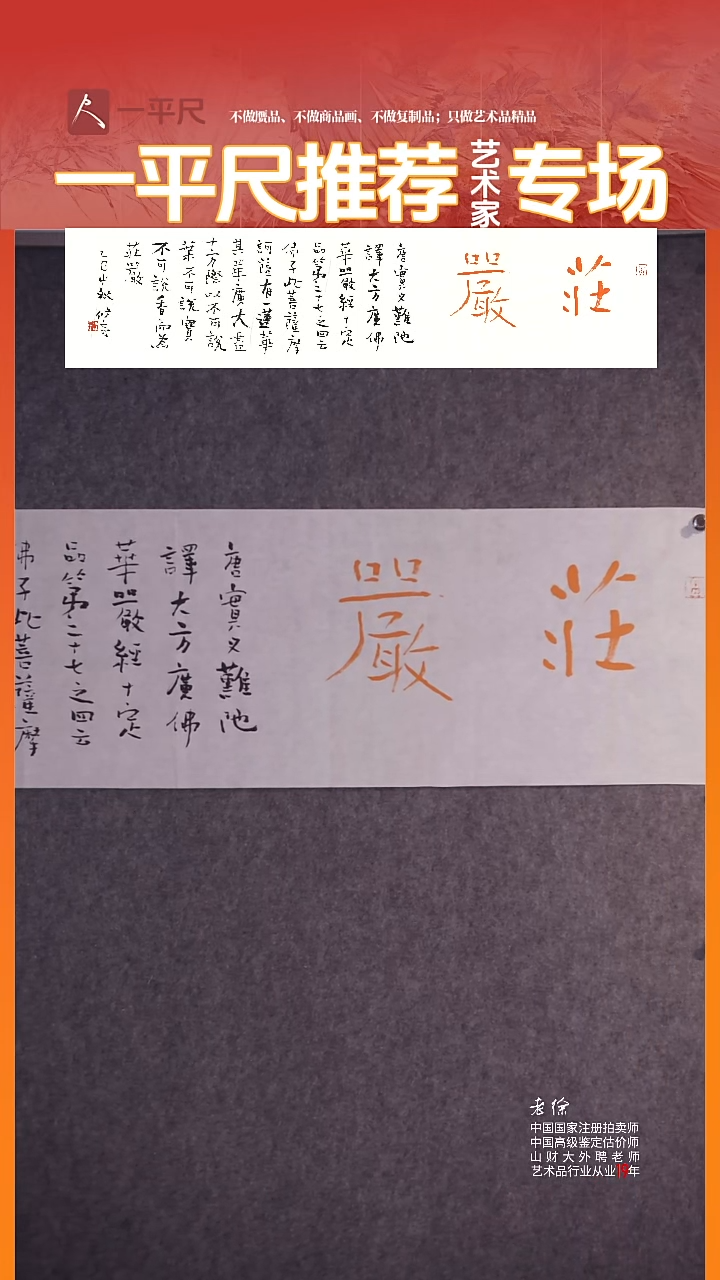 一平尺
不做赝品、不做商品画、不做复制品；只做艺术品精品
一平尺推荐艺术家专场
莊
嚴
唐實叉難陀
譯大方廣佛
華嚴經十定
品第二十七之四云
佛子此菩薩摩
訶薩有一蓮華
其華廣大盡
十方際以不可說
葉不可說寶
不可說香而為
莊嚴
乙巳
莊
嚴
唐實叉難陀
譯大方廣佛
華嚴經十定
品第二十七之四云
佛子此菩薩摩
老徐
中国国家注册拍卖师
中国高级鉴定估价师
山财大外聘老师
艺术品行业从业19年